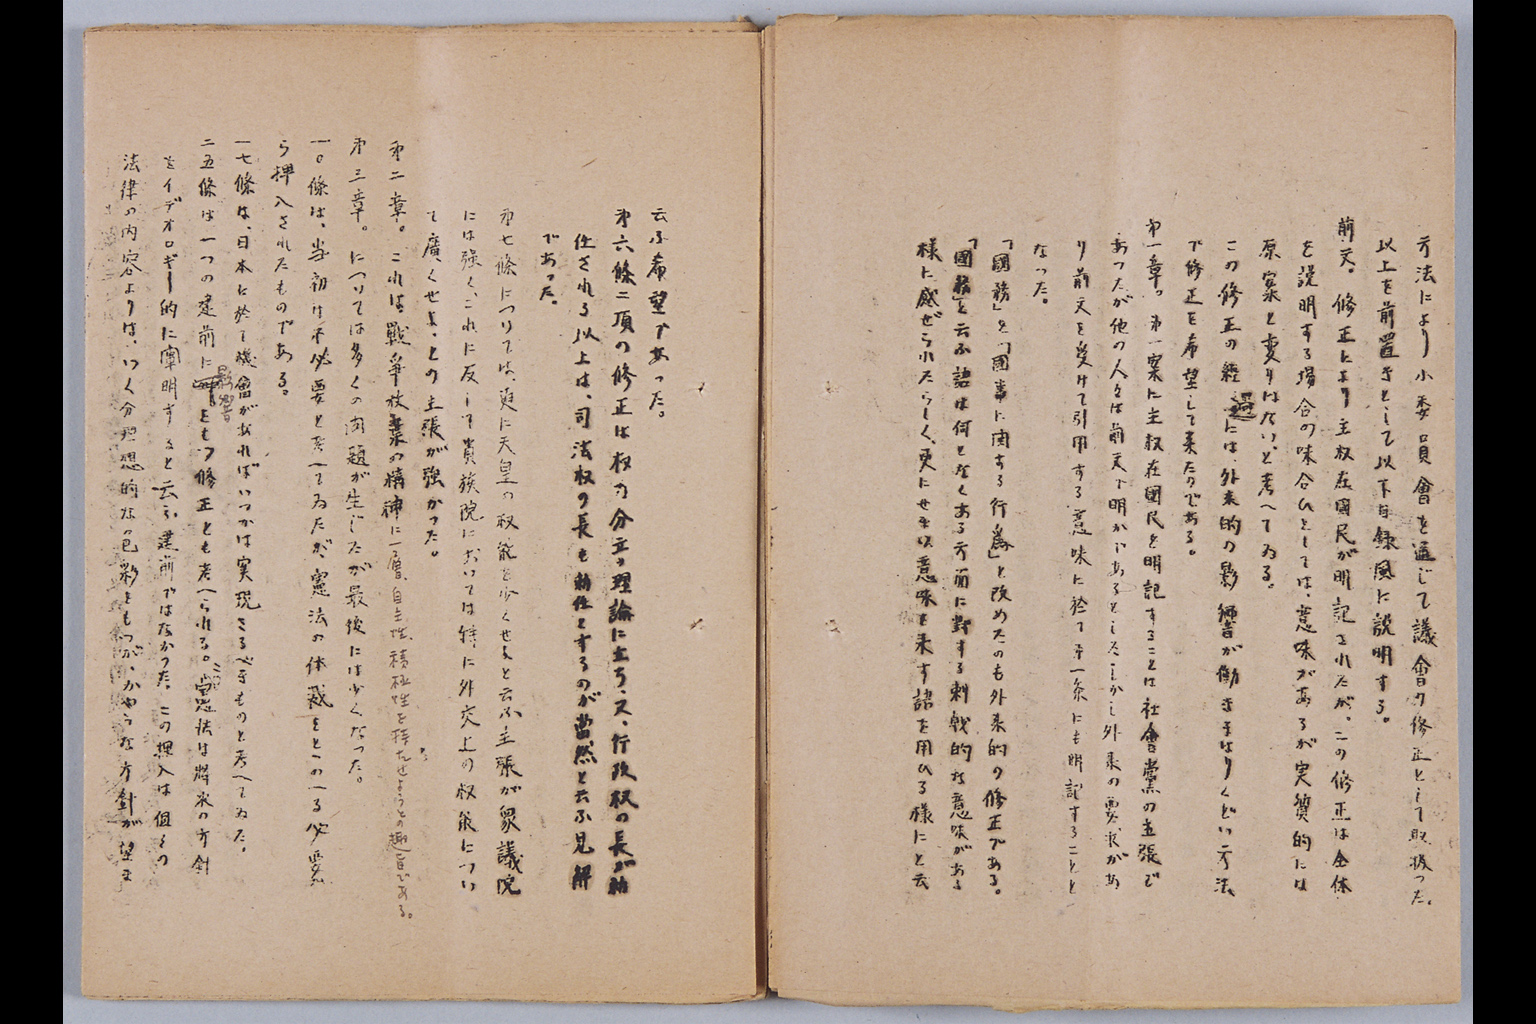 方法により小委員會を通じて議會の修正として取扱つた。
以上を前置きとして以下目録風に説明する。
前文。修正により主权在國民が明記されたが。この修正は全体
を説明する場合の味合ひとしては、意味があるが実質的には
原案と変りはないと考へてゐる。
この修正の経過には、外来的の影響が働きまはりくどい方法
で修正を希望して来たのである。
第一章。第一案に主权在國民を明記することは社會黨の主張で
あつたが他の人々は前文で明かであるとしたしかし外来の要求があ
り前文を受けて引用する意味に於て第一条にも明記することと
なつた。
「國務」を「國事に関する行為」と改めたのも外来的の修正である。
「國務」と云ふ語は何となくある方面に對する刺戟的な意味がある
様に感ぜられたらしく、更にせまい意味を来す語を用ひる様にと云
云ふ希望であつた。
第六條二項の修正は权力分立の理論に立ち、又、行政权の長が勅
任される以上は、司法权の長も勅任とするのが當然と云ふ見解
であつた。
第七條については、更に天皇の权能を少くせよと云ふ主張が衆議院
には強く、これに反して貴族院においては特に外交上の权能につい
て廣くせよ、との主張が強かつた。
第二章。これは戰爭放棄の精神に一層、自主性、積極性を持たせようとの趣旨である。
第三章。については多くの問題が生じたが最後には少くなつた。
一〇條は、当初は不必要と考へてゐたが、憲法の体裁をととのへる必要か
ら挿入されたものである。
一七條は、日本に於て機會があればいつかは実現さるべきものと考へてゐた。
二五條は一つの建前に影響をもつ修正とも考へられる。この憲法は將来の方針
をイデオロギー的に闡明すると云ふ建前ではなかつた。この挿入は個々の
法律の内容よりは、いくぶん理想的な色彩をもつが、かやうな方針が望ま